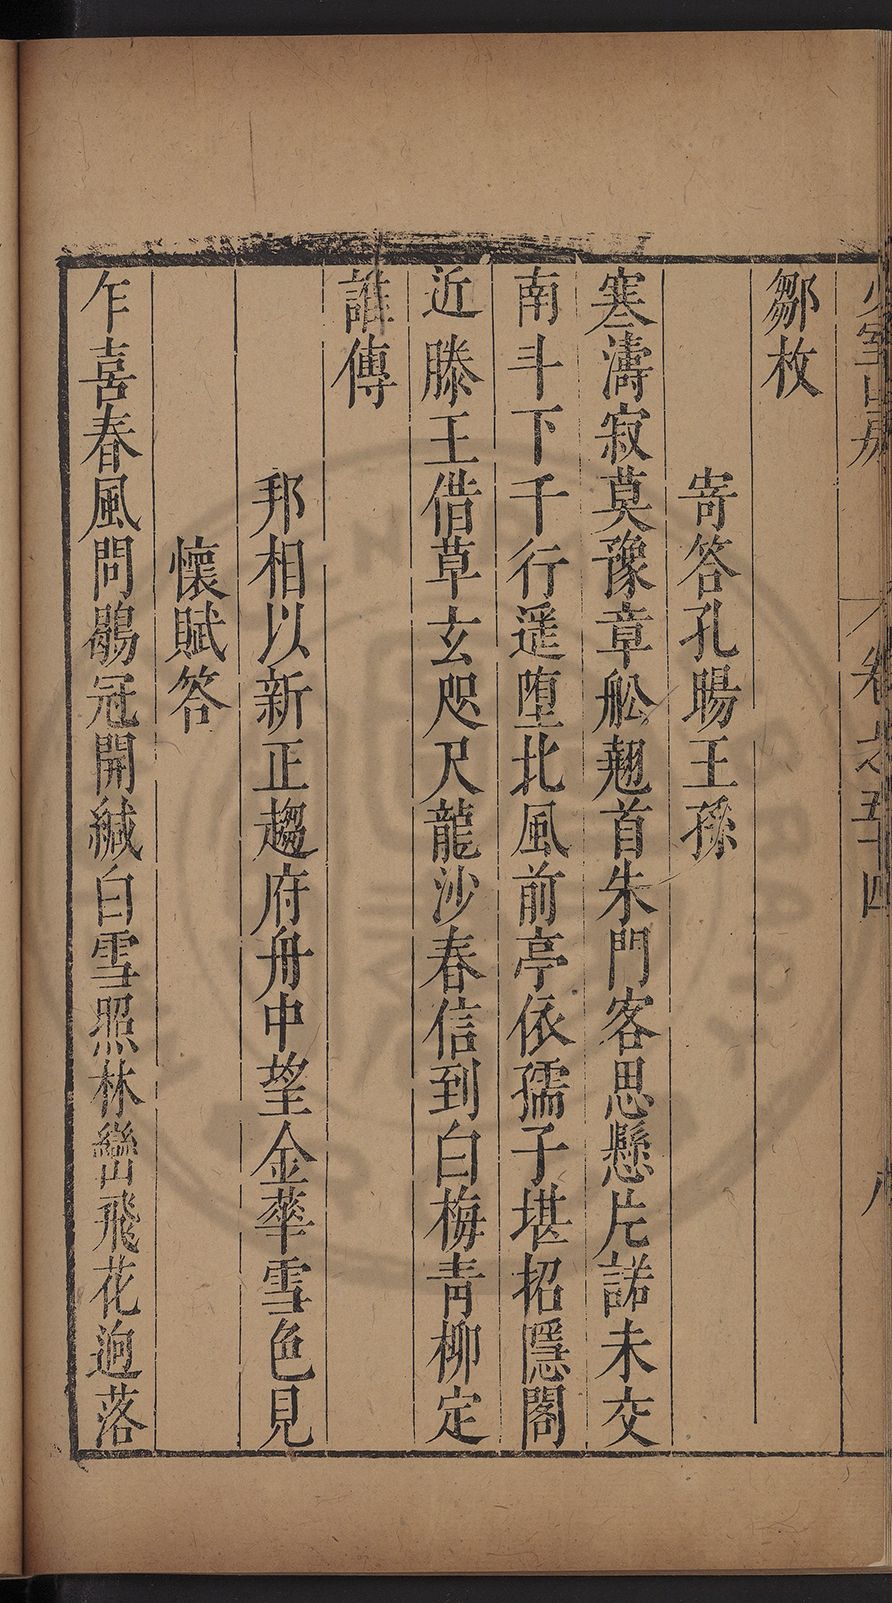 少室山房
卷之五十四
八
鄒枚
寄答孔暘王孫
寒濤寂莫豫章舩翹首朱門客思懸片諾未交
南斗下千行遥堕北風前亭依孺子堪招隱閣
近滕王借草玄咫尺龍沙春信到白梅青柳定
誰傳
邦相以新正趨府舟中望金華雪色見
懷賦答
乍喜春風問鶡冠開緘白雪照林巒飛花逈落